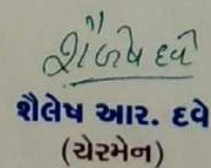 શૈલેષ દવે
શૈલેષ આર. દવે
(ચેરમેન)